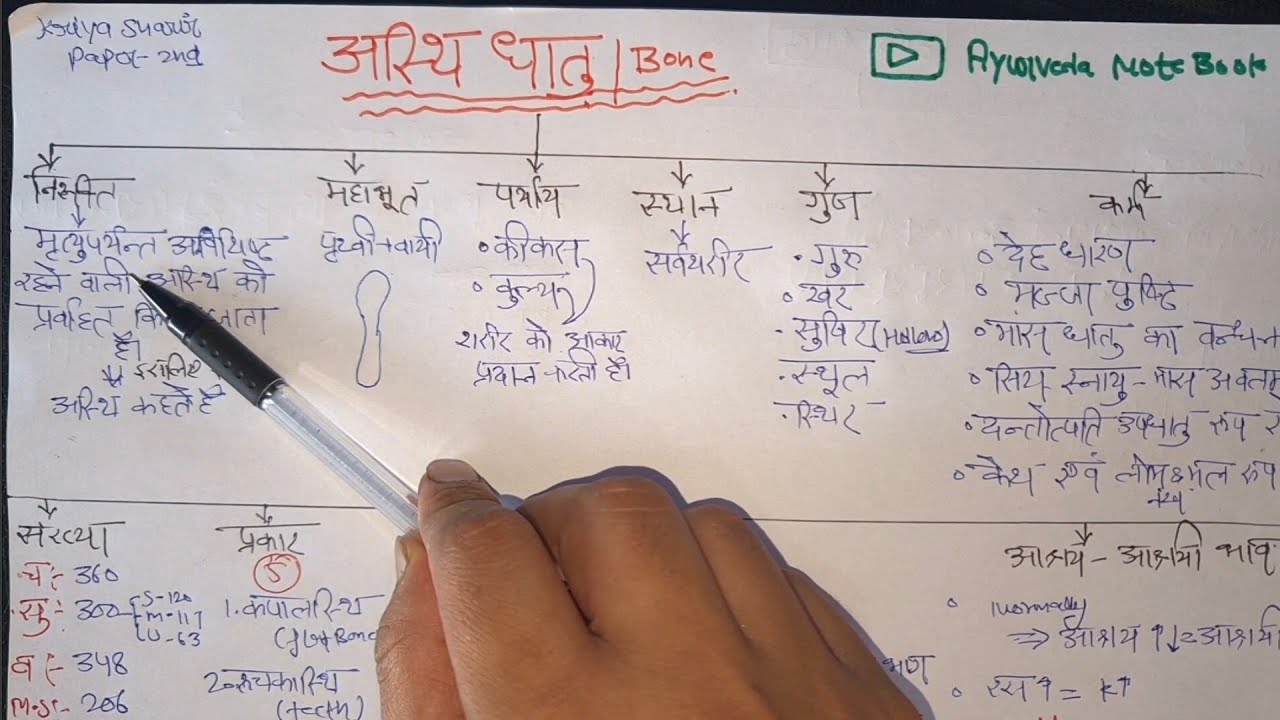 Paper- 2nd
अस्थि धातु | Bone
Ayurveda Note Book
महाभूत
पर्याय
स्थान
गुण
कर्म
मृत्युपर्यन्त
रहने वाली अस्थि को
प्रवाहित जाता
है।
अस्थि कहते हैं
पृथ्वी + वायी
• कीकस
• कुल्य
शरीर को आकार
प्रदान करती है।
सर्वशरीर
• गुरु
• खर
• सुषिर (Hollow)
• स्थूल
• स्थिर
• देह धारण
• मज्जा पुष्टि
• मांस धातु का बन्धन
स्नायु - मांस
• दन्तोत्पति उपधातु रूप
• केश एवं लोम मल रूप
नख
संख्या
च:- 360
सु:- 302 S-120
M-117
U-63
व:- 348
M.S:- 206
प्रकार
5
1. कपालस्थि
(flat Bone
2. रुचकास्थि
(teeth)
आश्रय - आश्रयी भाव
• Normally
⇒ आश्रय ↑↓ = आश्रयी
• रस ↑ = K↑